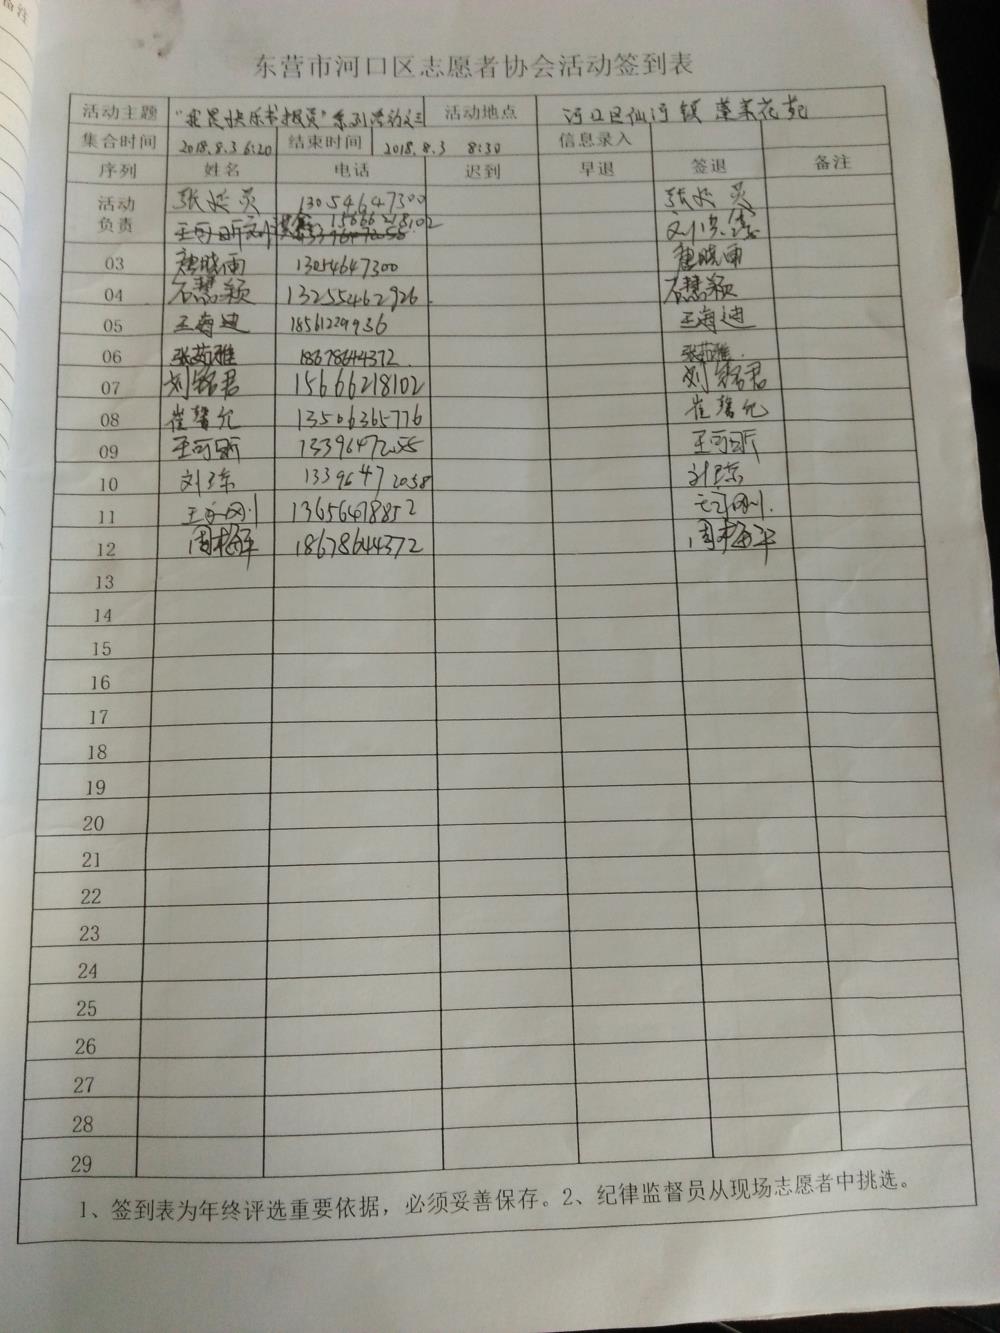 备注
东营市河口区志愿者协会活动签到表
活动主题 "我是快乐书报员"系列活动之三 活动地点 河口区仙河镇 蓬莱花苑
集合时间 2018.8.3 6:20 结束时间 2018.8.3 8:30 信息录入
序列 姓名 电话 迟到 早退 签退 备注
活动负责 张 灵 13054647300 张 灵
15666218102
03 唐晓雨 13054647300 唐晓雨
04 石慧颖 13255462926 石慧颖
05 王海迪 18561229936 王海迪
06 张茹雅 18678644372 张茹雅
07 刘铭君 15666218102 刘铭君
08 崔馨允 13506365776 崔馨允
09 王可昕 13396472055 王可昕
10 刘 13396472058 刘
11 王 刚 13656478852 刚
12 周梅平 18678644372 周梅平
13
14
15
16
17
18
19
20
21
22
23
24
25
26
27
28
29
1、签到表为年终评选重要依据，必须妥善保存。2、纪律监督员从现场志愿者中挑选。